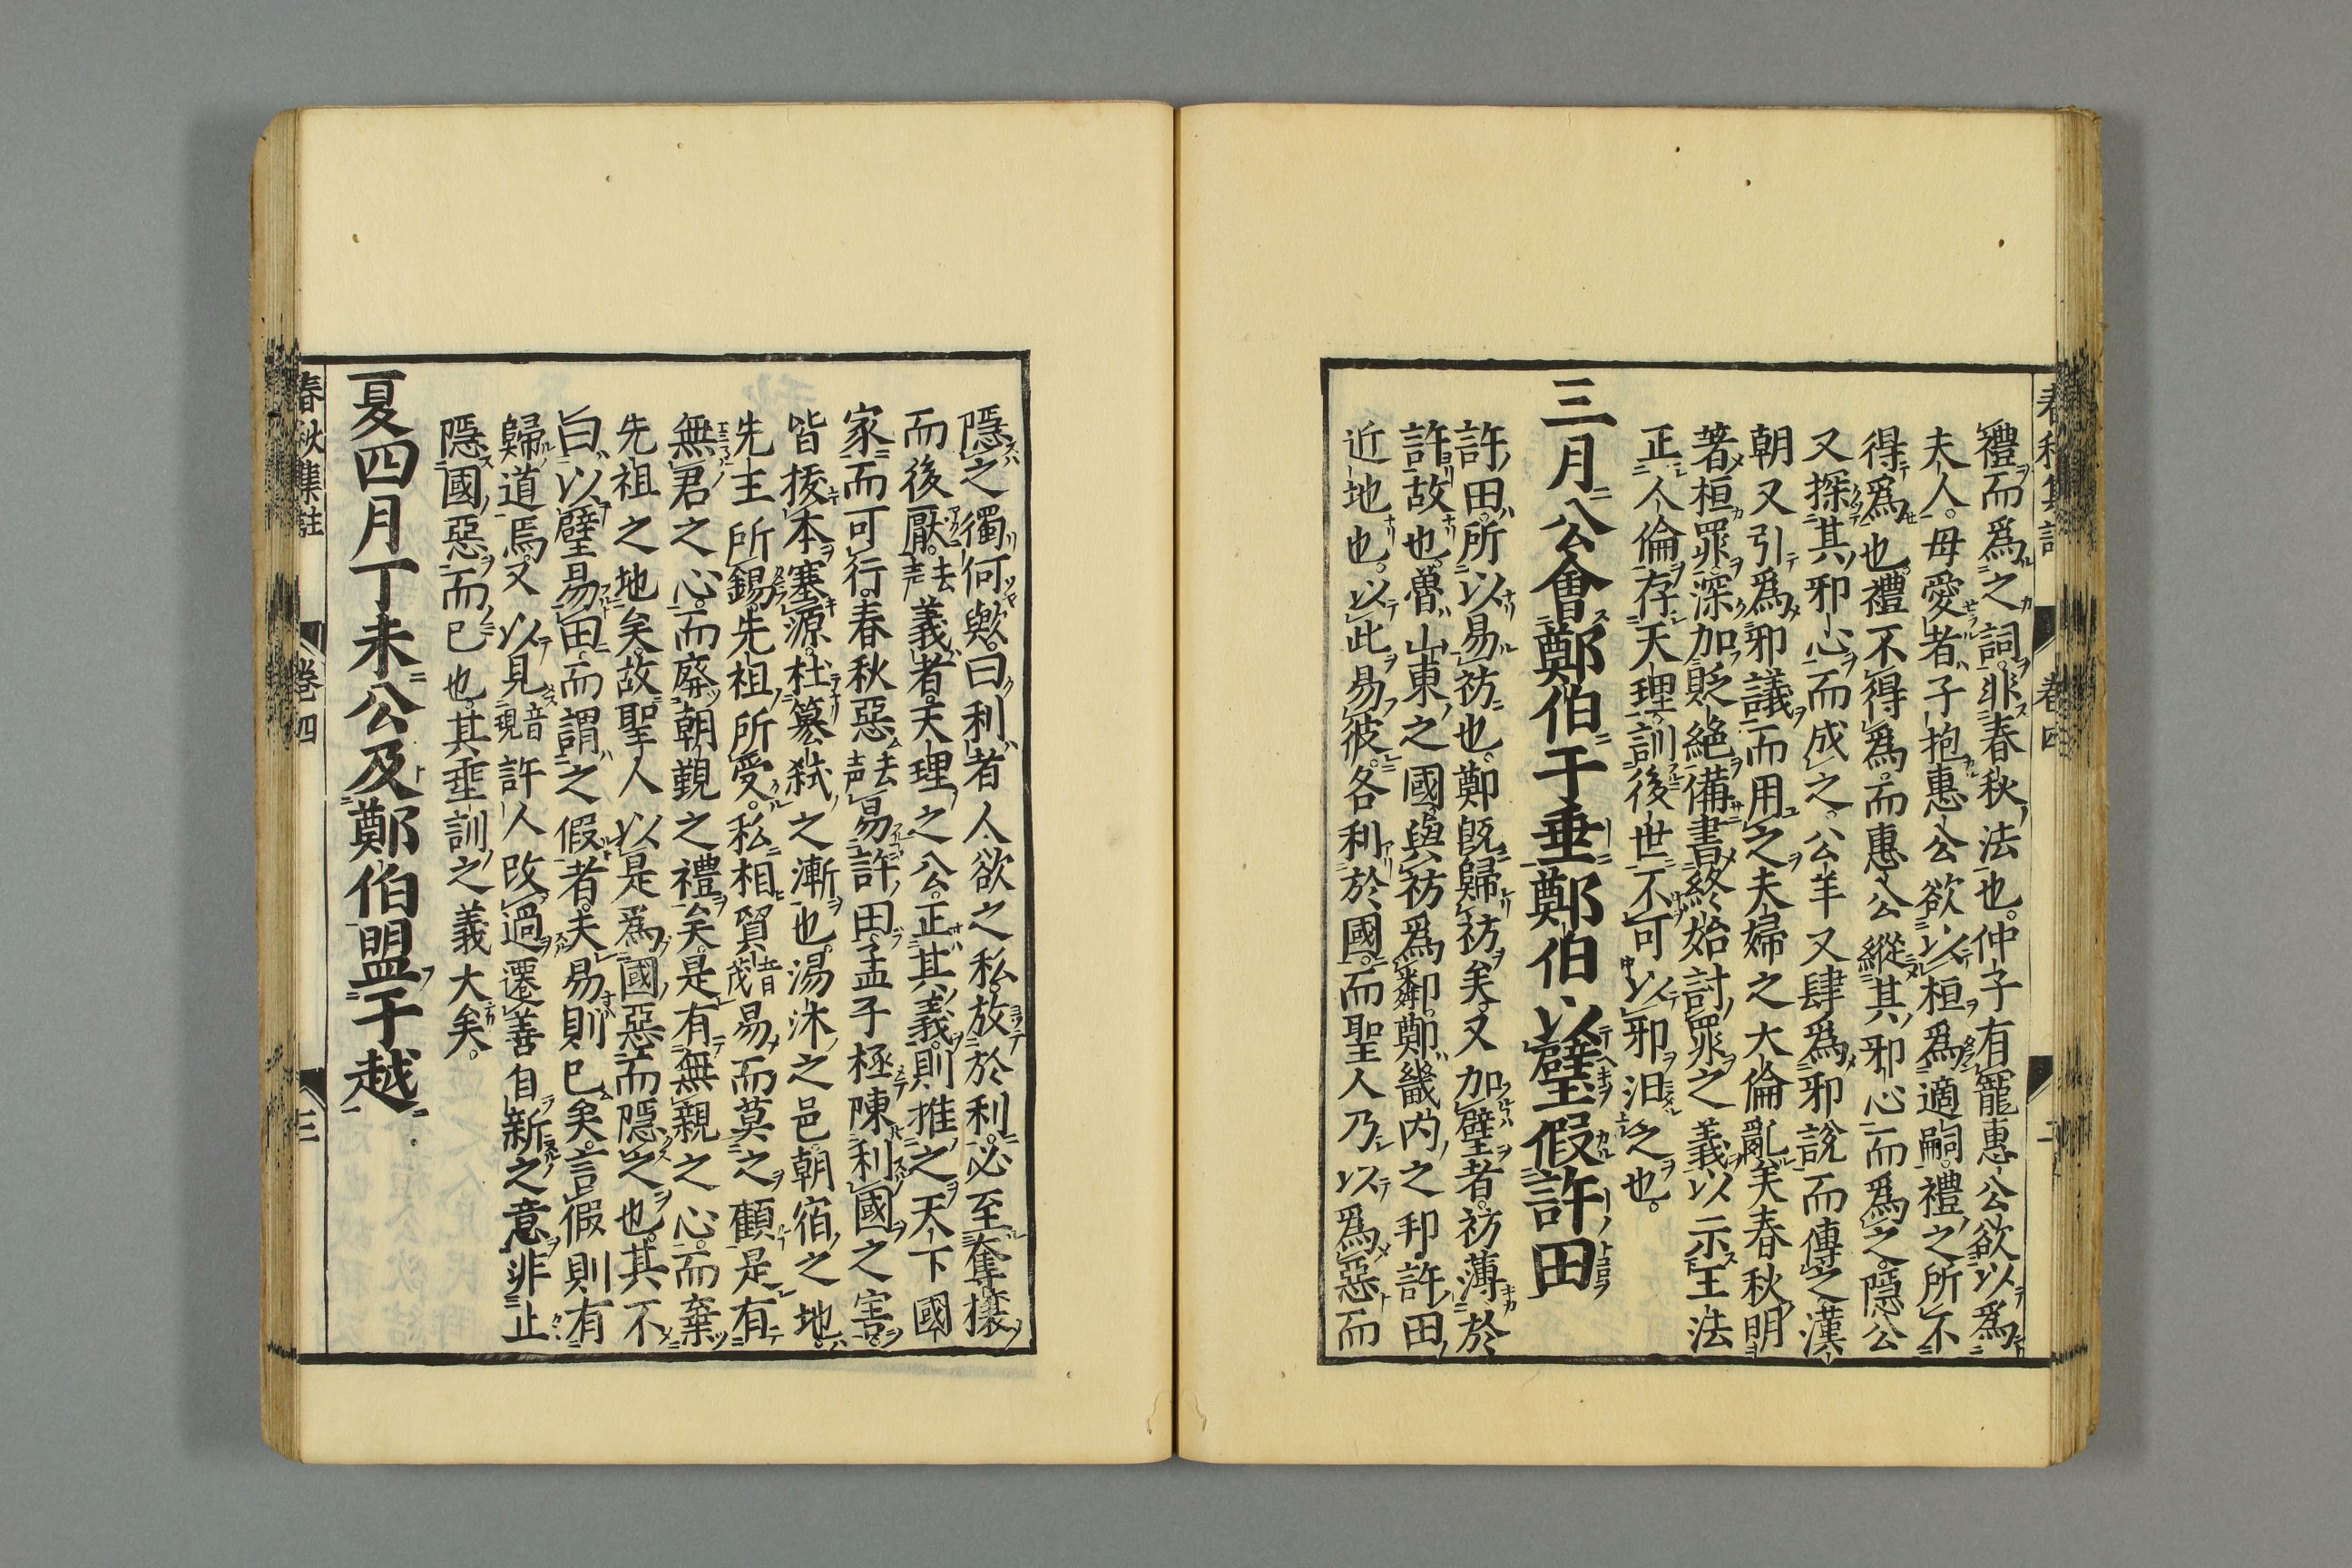 禮而爲之詞非春秋法也。仲子有寵惠公欲以爲
夫人。母愛者子抱惠公欲以桓爲適嗣禮之所不
得爲也。禮不得爲而惠公縱其邪心而爲之。隱公
又探其邪心而成之。公羊又肆爲邪說而傳之漢
朝又引爲邪議而用之夫婦之大倫亂矣春秋明
著桓罪深加貶絕備書終始討罪之義以示王法
正人倫存天理訓後世不可以邪汨之也。
三月公會鄭伯于垂鄭伯以璧假許田
許田所以易祊也。鄭旣歸祊矣。又加璧者。祊薄於
許故也。魯山東之國與祊爲鄰鄭畿內之邦許田
近地也。以此易彼。各利於國。而聖人乃以爲惡而
隱之獨何歟。曰利者人欲之私。放於利。必至奪攘
而後厭。去声義者。天理之公。正其義。則推之天下國
家而可行。春秋惡去声易許田。孟子極陳利國之害
皆拔本塞源。杜簒弒之漸也。湯沐之邑朝宿之地。
先王所錫。先祖所受。私相貿音茂易而莫之顧是有
無君之心。而廢朝覲之禮矣。是有無親之心。而棄
先祖之地矣。故聖人以是爲國惡而隱之也。其不
曰以璧易田。而謂之假者。夫易則已矣。言假則有
歸道焉。又以見音現許人改過遷善自新之意非止
隱國惡而已也。其垂訓之義大矣。
夏四月丁未公及鄭伯盟于越
春秋集註
卷四
三